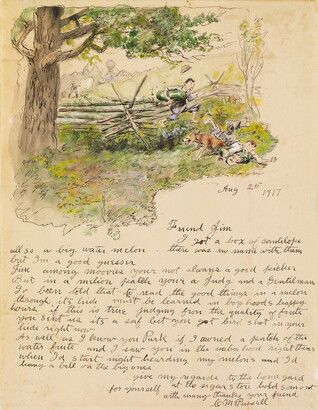 Aug 26 1917
Friend Jim
I got a box of cantilope
all so a big water melon there was no name with them
but I'm a good guesser
Jim among moovies your not always a good picker
But in a milion patch your a Judge and a Gentilman
Iv been told that to read the good things in a melon
through its hide must be learned in boy hoods happy
hours if this is true judging from the quality of fruite
you sent us its a saf bet you got bird shot in your
hide right now
As well as I know you Park if I owned a patch of the
water fruite and I saw you in the naborhood right thear
when I'd start night hearding my melons and I'd
hang a bell on the big ones
give my regards to the home gard
for yourself at the sigar store hold some out
with many thanks your friend
C M Russell